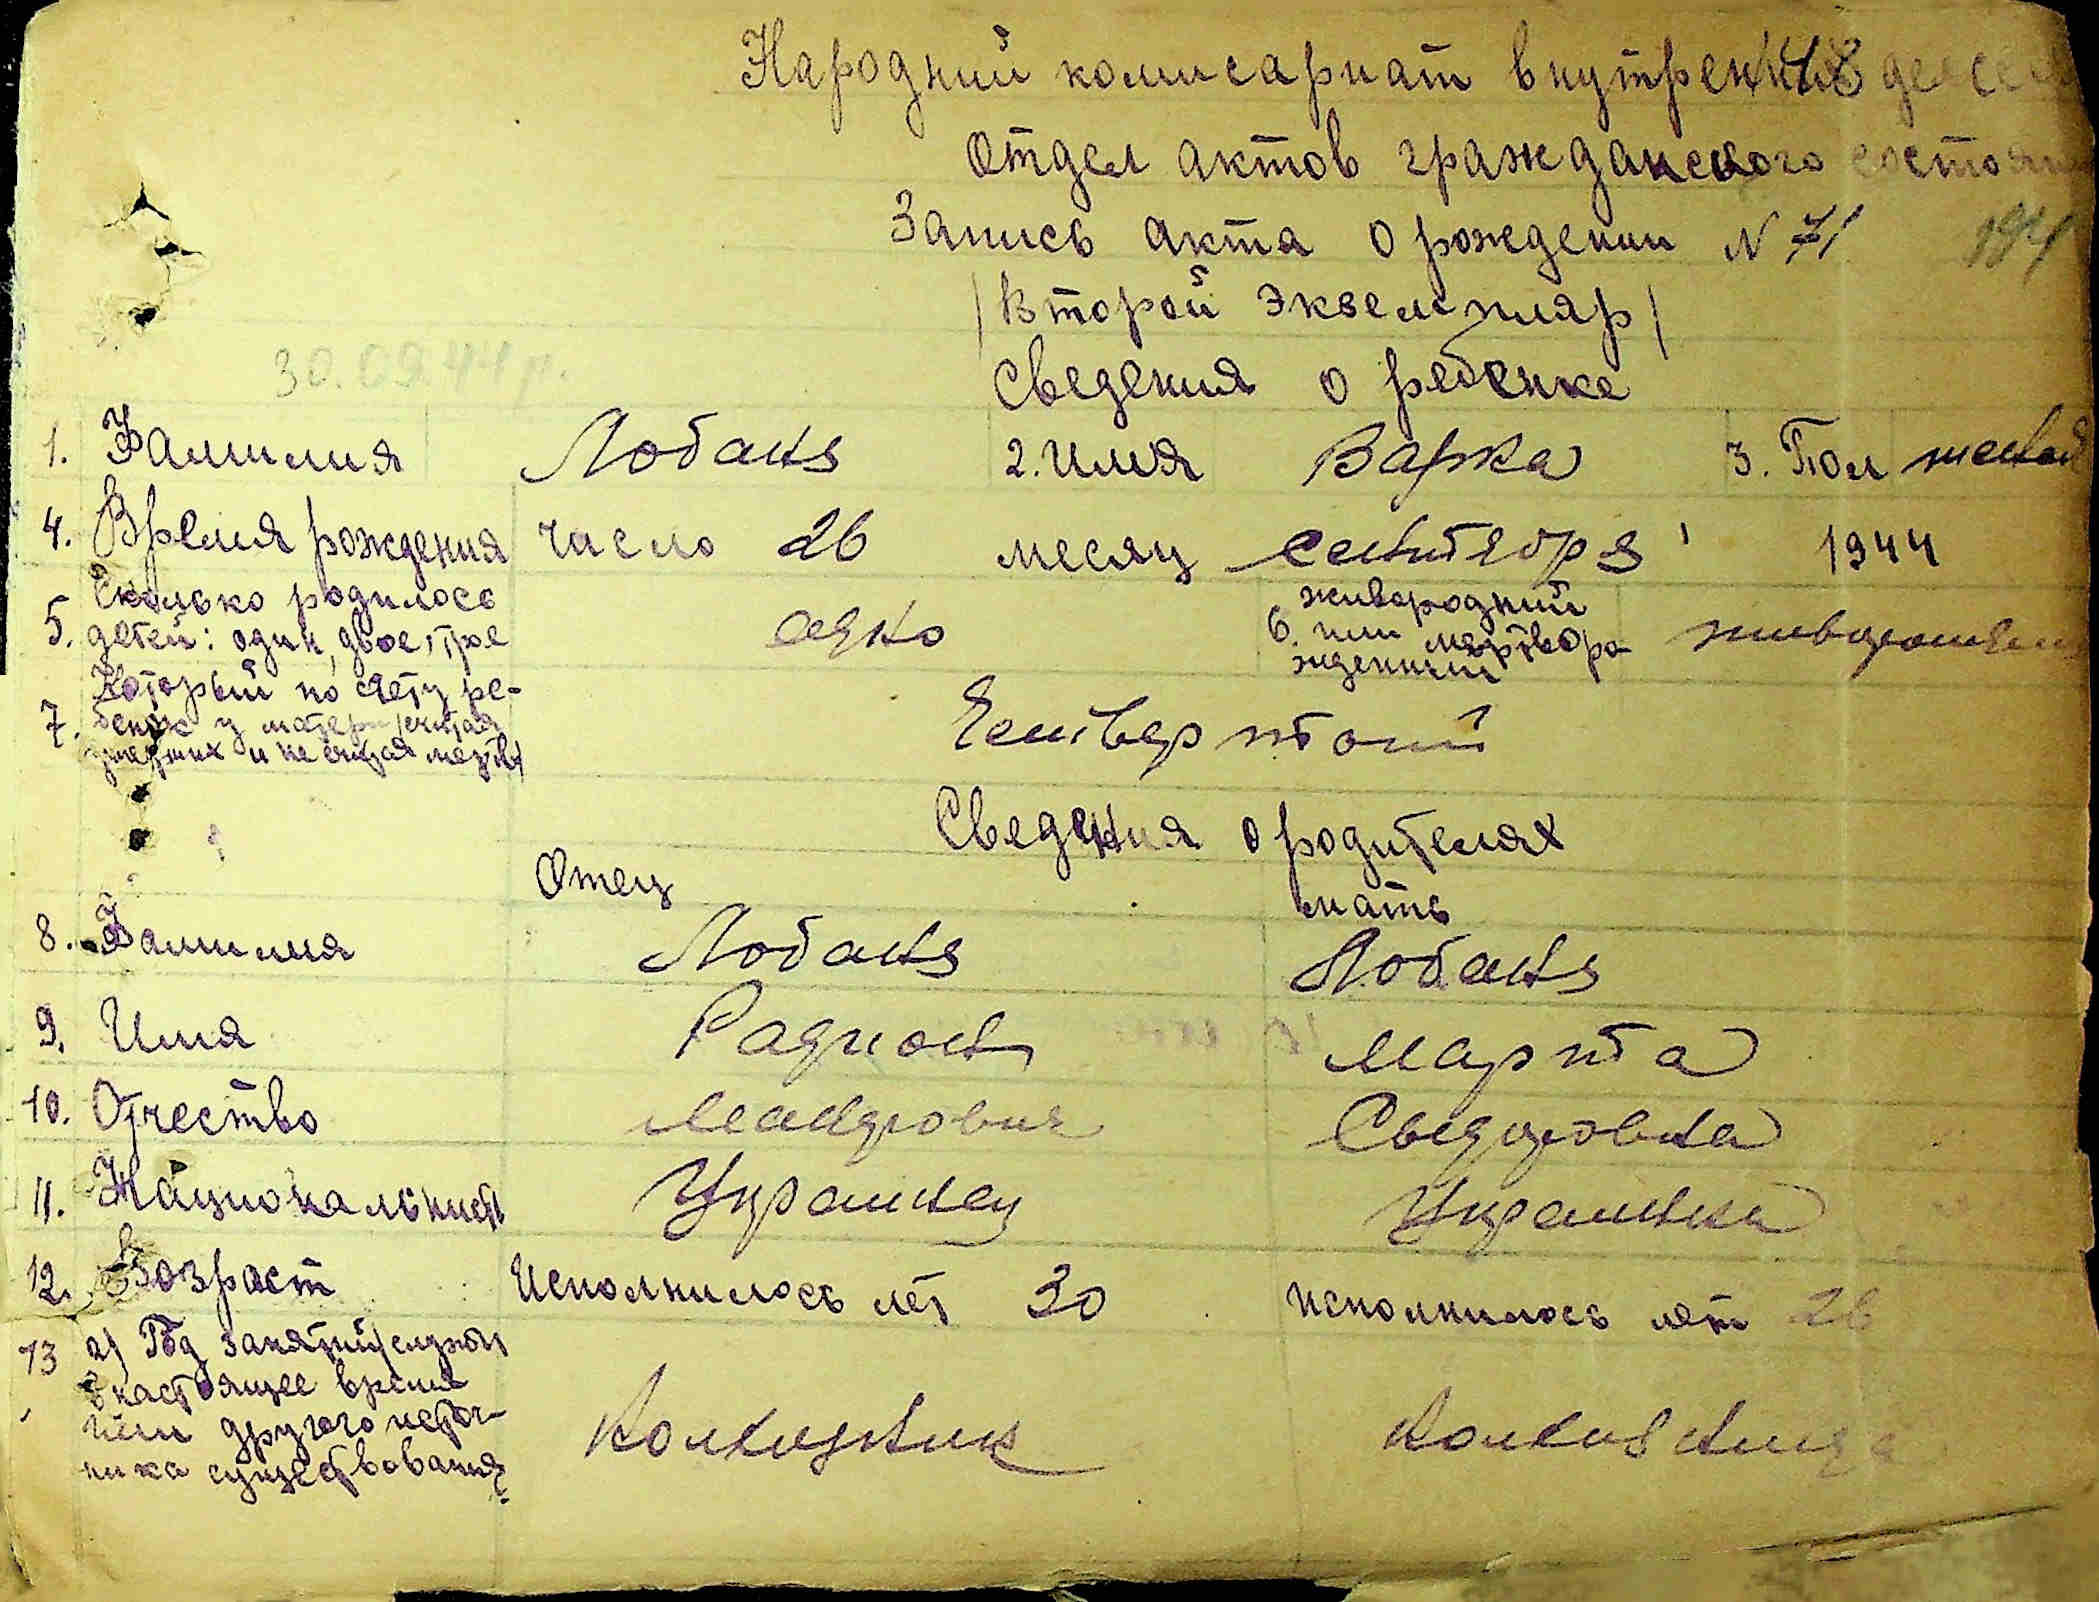 Народний комисариат внутренних дел
Отдел актов гражданского состоян
Запись акта о рождении N 71
/Второй экземпляр/
30.09.44 р.
Сведения о ребенке
1. Фамилия Лобань 2. Имя Варка 3. Пол женск
4. Время рождения число 26 месяц сентября 1944
5. Сколько родилось детей: один, двое, трое одно 6. живородний или мертворо-жденный
7. Который по счету ре-бенок у матери считая умерших и не считая мертв/ Четвертый
Сведения о родителях
Отец мать
8. Фамилия Лобань Лобаня
9. Имя Радион Марта
10. Отчество Сыдоровна
11. Национальность Украинец Украинка
12. Возраст Исполнилось лет 30 исполнилось лет 26
13 а) Род занятий/службы
в настоящее время
или другого источ-
ника существования Колхозник Колхозница